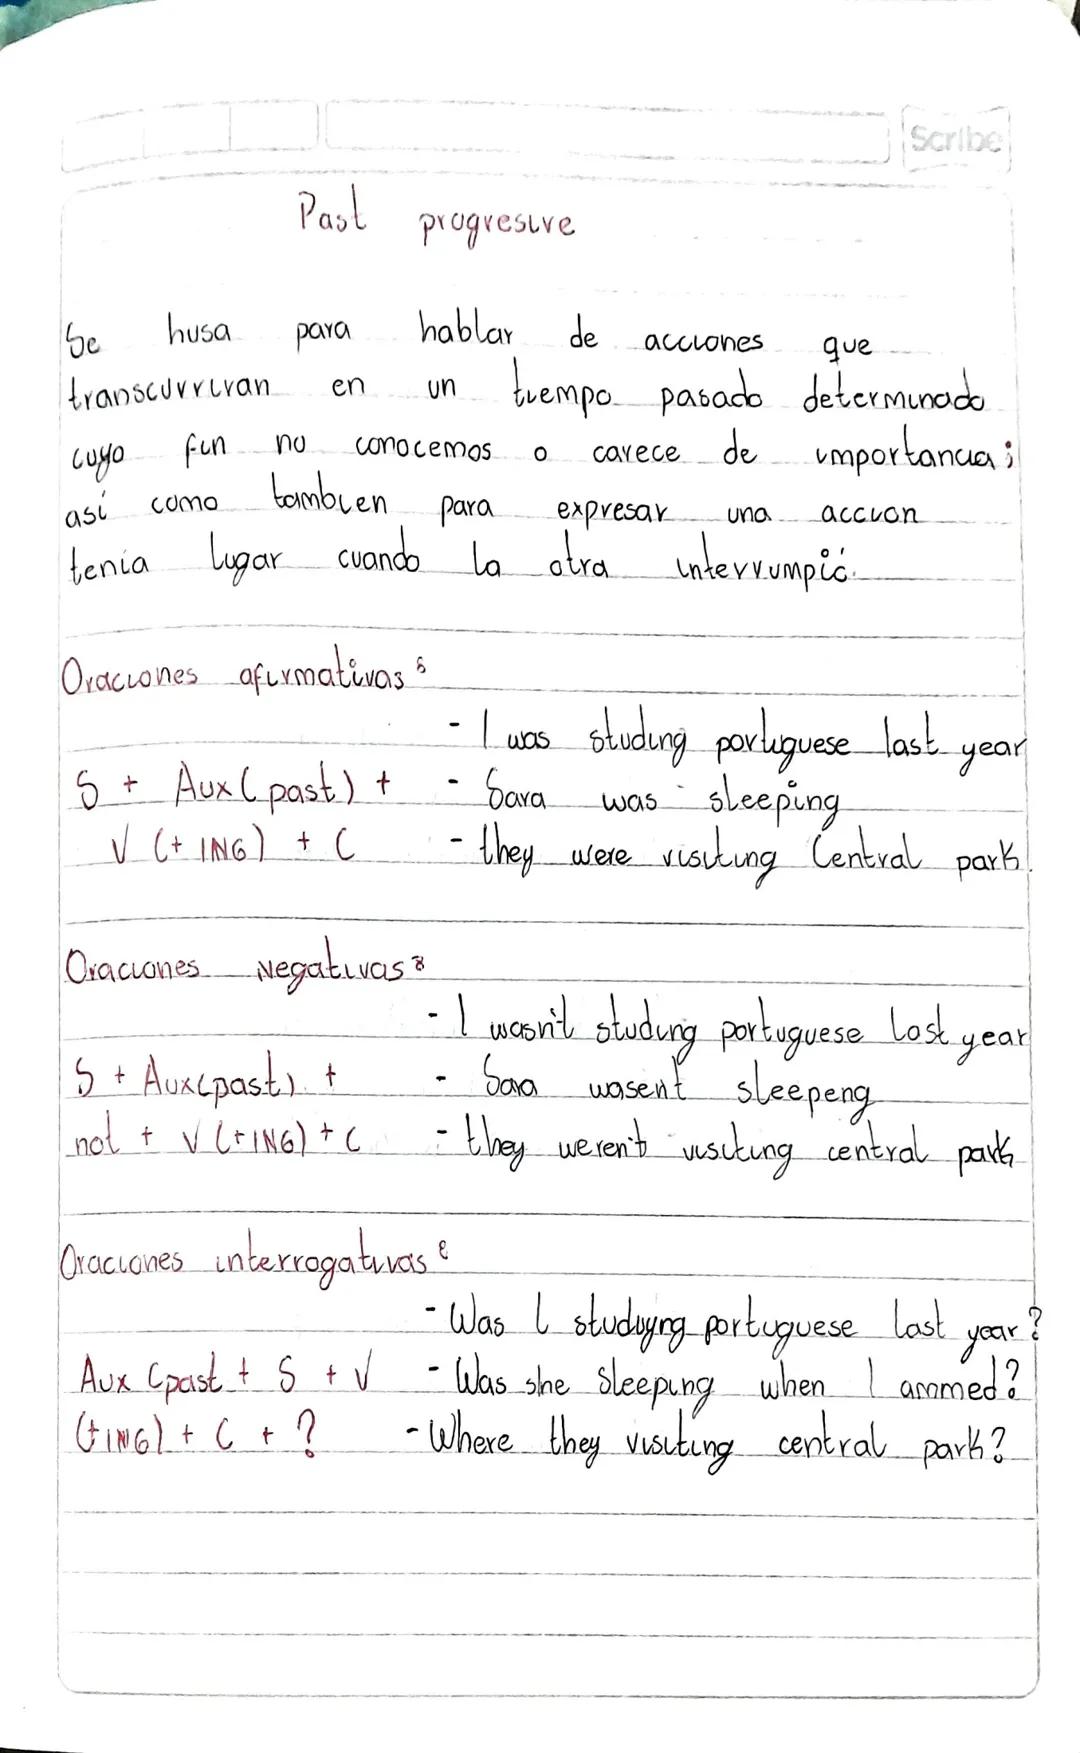 Scribe
Past progresive
Se husa para hablar de acciones que
transcurriran en un tiempo pasado determinado
cuyo fin no conocemos o carece de importancia;
así como tambien para expresar una accion
tenia lugar cuando la otra interrumpió.
Oraciones afirmativas:
- I was studing portuguese last year
S + Aux (past) + - Sara was sleeping
V (+ ING) + C - they were visiting Central park.
Oraciones Negativas:
- I wasn't studing portuguese last year
S + Aux(past) + - Sara wasent sleepeng
not + V (+ING) + C - they weren't visiting central park
Oraciones interrogativas:
- Was I studuyng portuguese last year?
Aux (past + S + V - Was she sleeping when I ammed?
(+ING) + C + ? - Where they visiting central park?